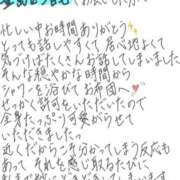 忙しい中お時間ありがとう✨
とってもお話しやすくて居心地よくて
気づけばたくさんお話してしまいました
そんな穏やかな時間から
シャワーを浴びてお布団へ♥
ぜひから許をいただいたので
全身たっぷり可愛がらせて
いただきました
近くだからこそ分かってしまう反応も
あって それを感じ取るたびに